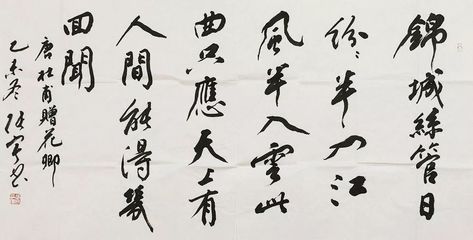 錦城絲管日
紛〻半入江
風半入雲此
曲只應天上有
人間能得幾
囬聞
唐杜甫贈花卿
乙未冬